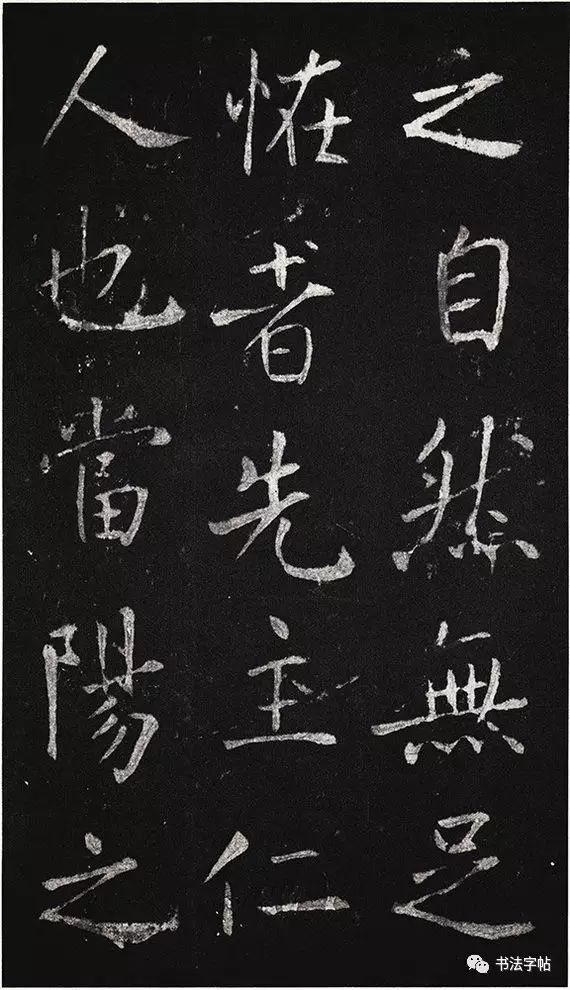 之自然無足
恠者先主仁
人也當陽之
书法字帖